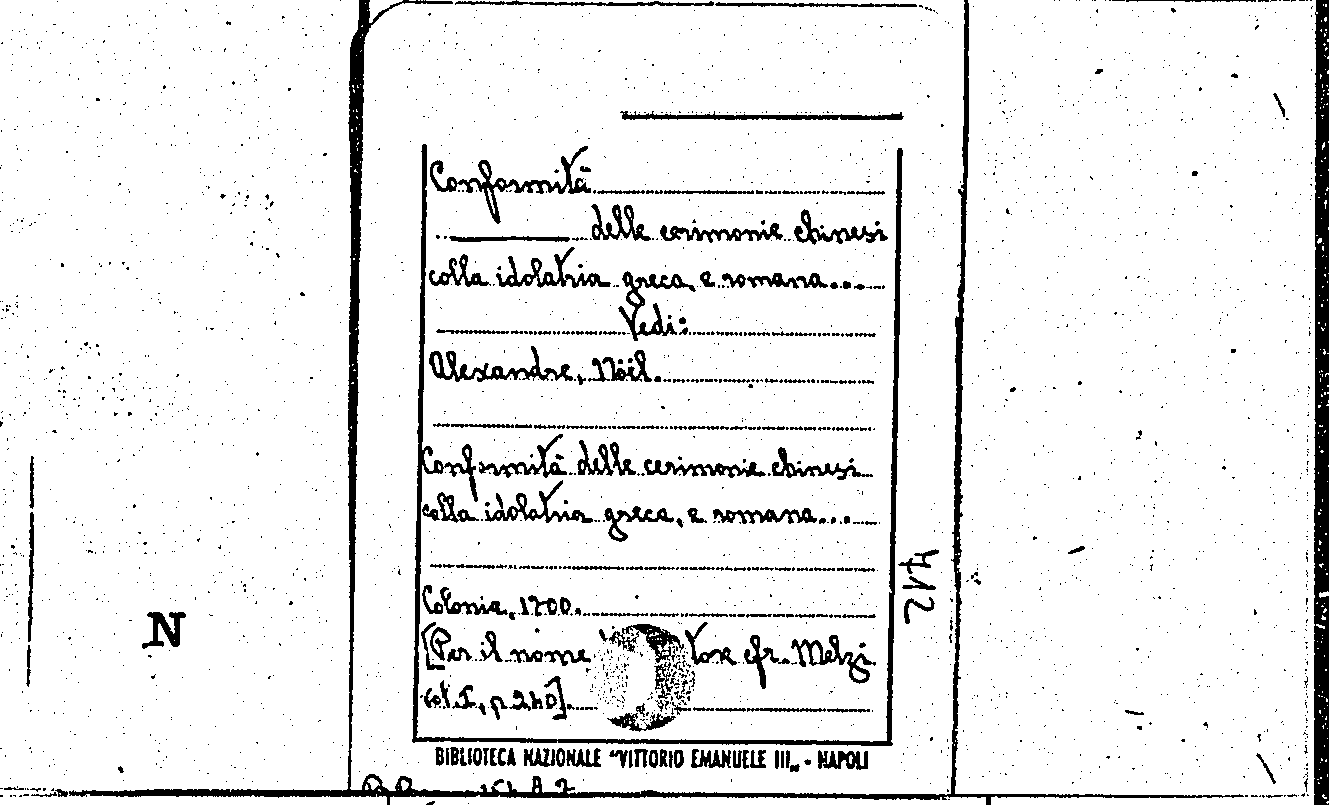 Conformità
delle cerimonie chinesi
colla idolatria greca, e romana...
Vedi:
Alexandre, Nöel.
Conformità delle cerimonie chinesi
colla idolatria greca, e romana...
Colonia, 1700.
[Per il nome tore cfr. Melzi
vol. I, p. 240].
412
N
BIBLIOTECA NAZIONALE "VITTORIO EMANUELE III„ - NAPOLI